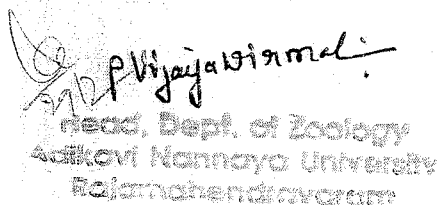 P Vijaya Nirmala
Head, Dept. of Zoology
Adikavi Nannaya University
Rajamahendravaram